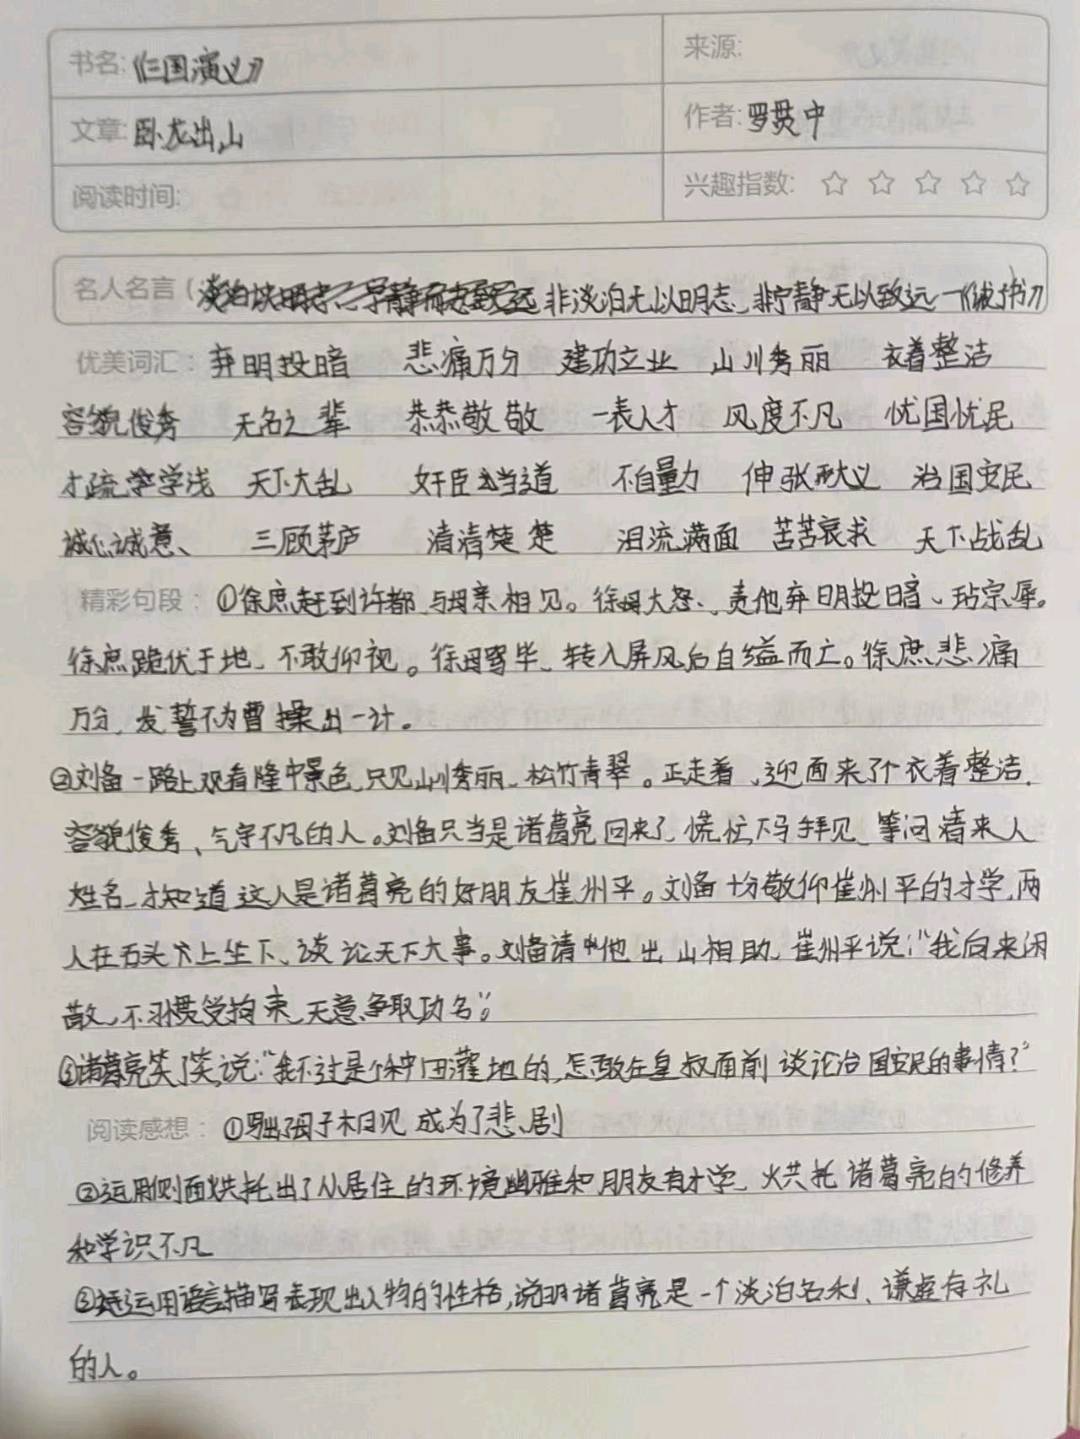 书名:《三国演义》
来源:
文章:卧龙出山
作者:罗贯中
阅读时间:
兴趣指数: ☆ ☆ ☆ ☆ ☆
名人名言( 非淡泊无以明志、非宁静无以致远—《诫子书》)
优美词汇: 弃明投暗 悲痛万分 建功立业 山川秀丽 衣着整洁
容貌俊秀 无名之辈 恭恭敬敬 一表人才 风度不凡 忧国忧民
才疏学浅 天下大乱 奸臣当道 不自量力 伸张大义 治国安民
诚心诚意、 三顾茅庐 清清楚楚 泪流满面 苦苦哀求 天下战乱
精彩句段: ①徐庶赶到许都、与母亲相见。徐母大怒、责他弃明投暗、玷宗辱。
徐庶跪伏于地、不敢仰视。徐母骂毕、转入屏风后自缢而亡。徐庶悲痛
万分、发誓不为曹操出一计。
②刘备一路上观看隆中景色,只见山川秀丽、松竹青翠。正走着、迎面来了个衣着整洁、
容貌俊秀、气宇不凡的人。刘备只当是诸葛亮回来了、慌忙下马拜见、等问清来人
姓名、才知道这人是诸葛亮的好朋友崔州平。刘备十分敬仰崔州平的才学,两
人在石头上坐下、谈论天下大事。刘备请他出山相助、崔州平说:“我向来闲
散、不习惯受拘束、无意争取功名”;
③诸葛亮笑了笑说:“我不过是个种田灌地的、怎敢在皇叔面前谈论治国安民的事情?”
阅读感想: ①写出母子相见成为了悲剧
②运用侧面烘托出了从居住的环境幽雅和朋友有才学、烘托诸葛亮的修养
和学识不凡
③运用语言描写表现出人物的性格,说明诸葛亮是一个淡泊名利、谦虚有礼
的人。